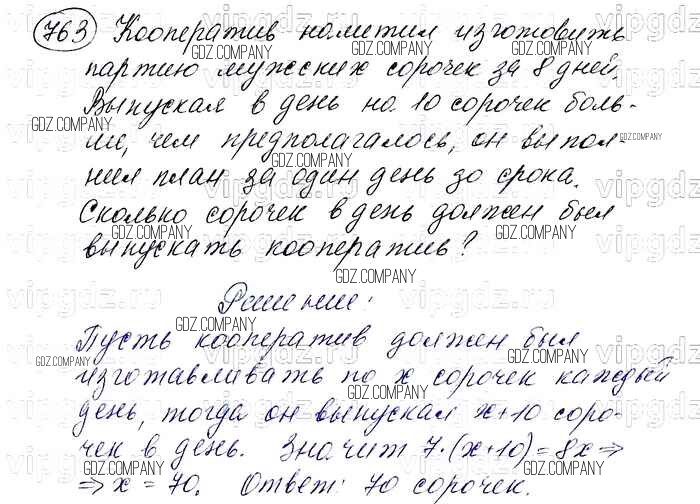 763 Кооператив наметил изготовить
партию мужских сорочек за 8 дней.
Выпускал в день на 10 сорочек боль-
ше, чем предполагалось, он выпол-
нил план за один день до срока.
Сколько сорочек в день должен был
выпускать кооператив?
Решение:
Пусть кооператив должен был
изготавливать по x сорочек каждый
день, тогда он выпускал x+10 соро-
чек в день. Значит 7·(x+10)=8x⇒
⇒x = 70. Ответ: 70 сорочек.
GDZ.COMPANY
vipgdz.ru